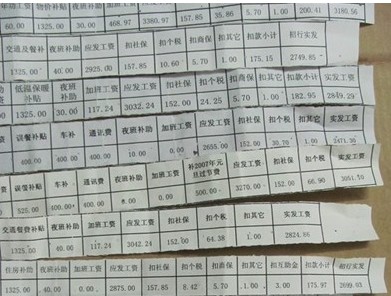 补助 物价补贴 夜班补助 加班工资
60.00 1325.00 30.00 468.97 3380.97 157.85 35.86 5.70 1.00 200.41 3180.56
交通及餐补 夜班补助 加班工资 应发工资 扣社保 扣个税 扣商保 扣其它 扣款小计 招行实发
1325.00 40.00 0.00 2925.00 157.85 10.60 5.70 1.00 175.15 2749.85
低温保暖补贴 夜班补助 加班工资 应发工资 扣社保 扣个税 扣商保 扣其它 扣款小计 实发工资
1325.00 30.00 117.24 3032.24 152.00 24.25 5.70 1.00 182.95 2849.29
误餐补贴 车补 通讯费 夜班补助 加班工资 应发工资 扣社保 扣个税 扣其它 实发工资
400.00 400.00 400.00 10.00 0.00 2655.00 152.00 30.00
误餐补贴 车补 通讯费 夜班补助 加班工资 补2007年元旦过节费 应发工资 扣社保 扣个税 实发工资
525.00 400.00 400.00 0.00 500.00 3270.00 152.00 66.90 3051.10
交通餐费补贴 夜班补助 加班工资 应发工资 扣社保 扣个税 扣其它 实发工资
1325.00 40.00 117.24 3042.24 152.00 64.38 1.00 2824.86
住房补助 夜班补助 加班工资 应发工资 扣社保 扣个税 扣商保 扣互助金 扣款小计 招行实发
1325.00 40.00 0.00 2875.00 157.85 8.42 5.70 1.00 3.00 175.97 2699.03